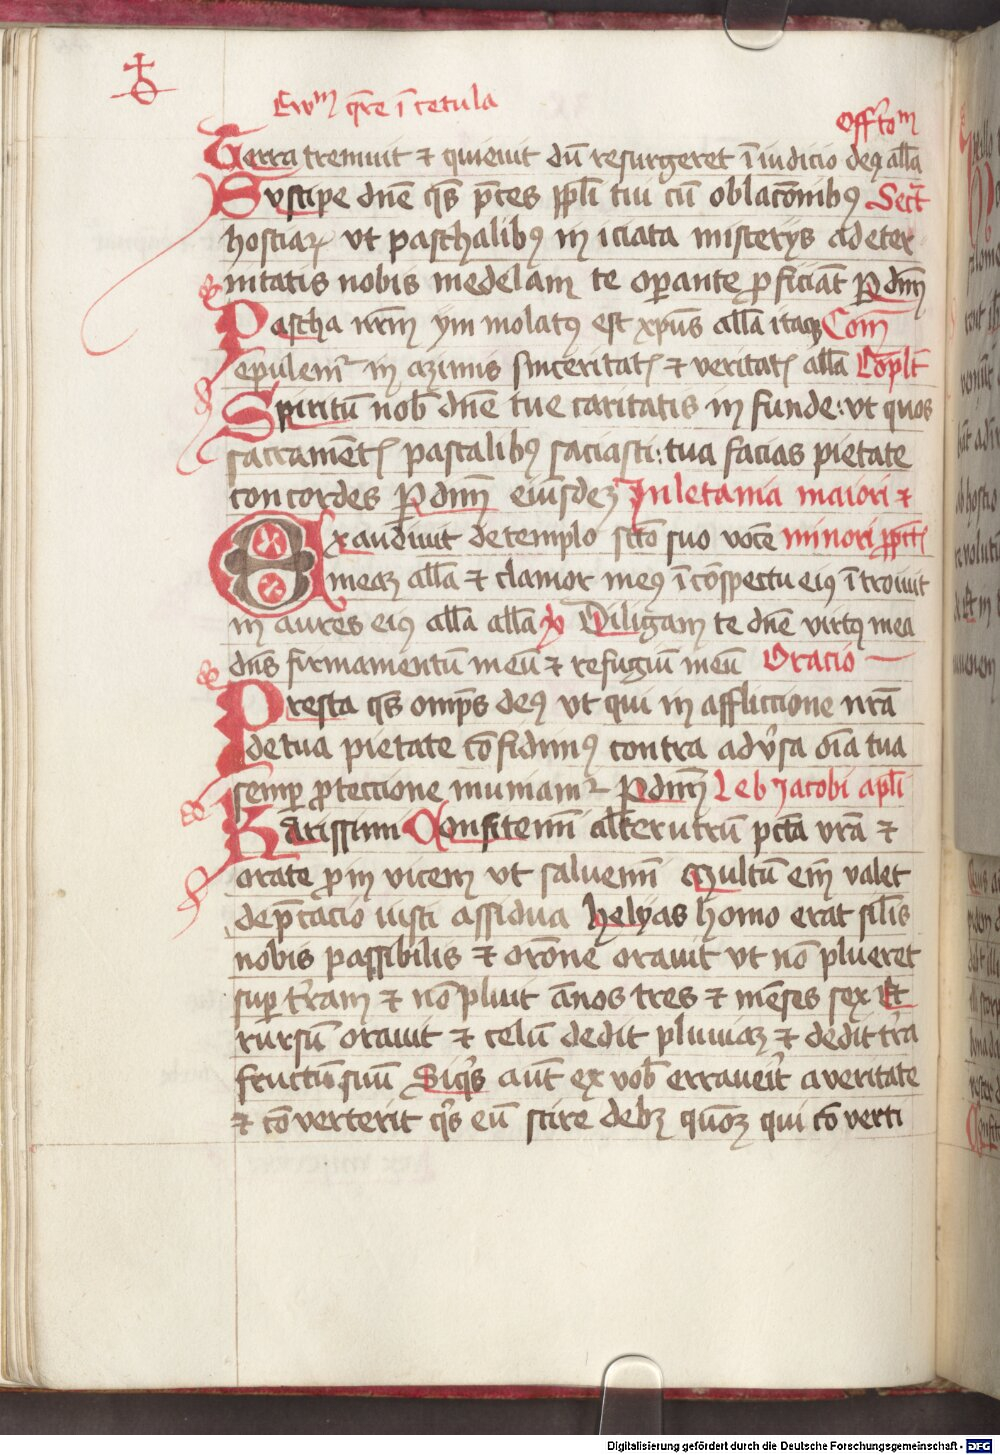 Ewm̄ qͬre ī cetula
Offͬtom̄
Terra tremuit ⁊ quieuit dū resurgeret ī iudicio deꝯ all̄a
Suscipe dn̄e qs̄ p̄ces ppl̄i tui cū oblacōnibꝯ Secr̄t
hostiaꝝ vt paschalibꝯ in iciata misterijs ad eter
nitatis nobis medelam te oꝑante ꝓficiāt P dm̄
Pascha nr̄m ym molatꝯ est xpūs all̄a itaqꝫ Com̄
epulemͬ in azimis sinceritatꝭ ⁊ veritatꝭ all̄a Cōplt̄
Spiritū nob̄ dn̄e tue caritatis in funde: vt quos
sacramētꝭ pascalibꝯ saciasti: tua facias pietate
concordes P dm̄ eiusdeꝫ In letania maiori ⁊
Exaudiuit de templo sct̄o suo vocē minori
meaꝫ all̄a ⁊ clamor meꝯ ī cōspectu eiꝯ ī troiuit
in aures eiꝯ all̄a all̄a Diligam te dn̄e virtꝯ mea
dn̄s firmamentū meū ⁊ refugiū meū Oracio
Presta qs̄ omp̄s deꝯ vt qui in affliccione nr̄a
de tua pietate cōfidimꝯ contra adūsa oīa tua
semꝑ ꝓteccione muniamͬ P dm̄ Le b Jacobi apl̄i
Karissimi Confitemī alt̄erutrū pctā vr̄a ⁊
orate ꝓ in vicem vt saluemī Multū em̄ valet
dep̄cacio iusti assidua helyas homo erat sil̄is
nobis passibilis ⁊ orōne orauit vt nō plueret
suꝑ tr̄ram ⁊ nō pluit ānos tres ⁊ mēses sex Et
rursū orauit ⁊ celū dedit pluuiaꝫ ⁊ dedit tr̄a
fructū suū Siqͥs aūt ex vob̄ errauerīt a veritate
⁊ cōverterit qͥs eū scire debꝫ qm̄oꝫ qui cōverti
Digitalisierung gefördert durch die Deutsche Forschungsgemeinschaft - DFG